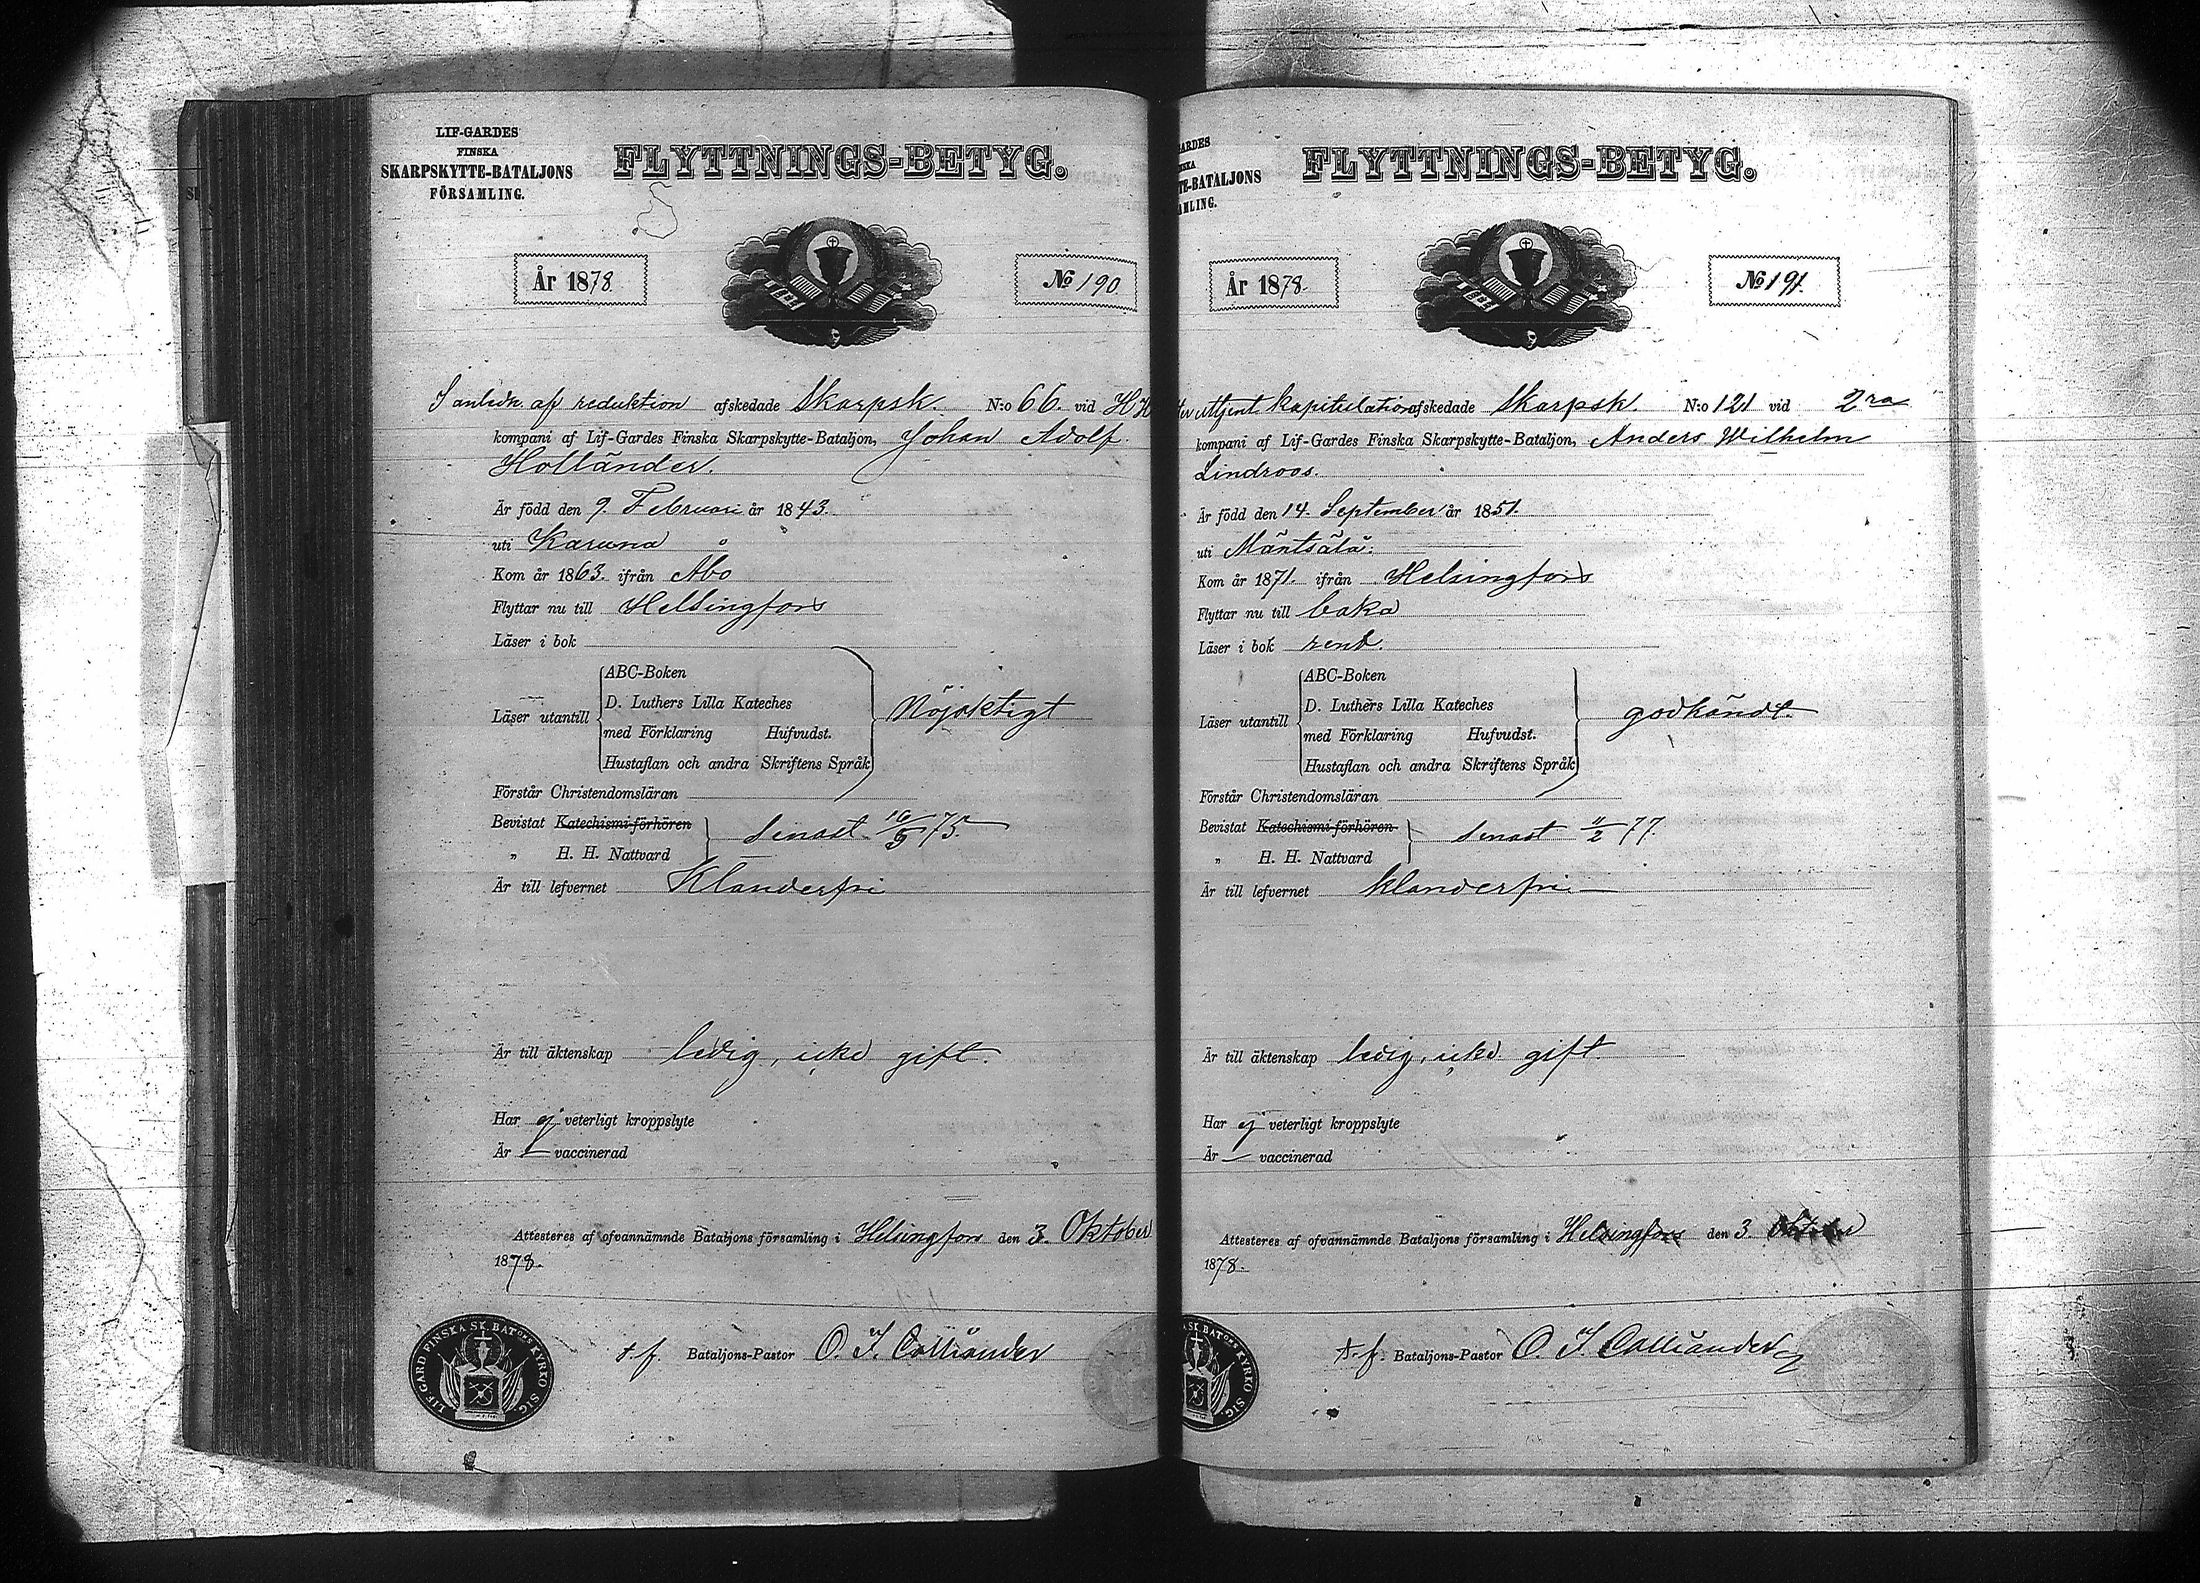 LIF-GARDES
FINSKA
SKARPSKYTTE-BATALJONS
FÖRSAMLING.
FLYTTNINGS-BETYG.
År 1878.
No 190
I anledn. af reduktion afskedade Skarpsk. N:o 66. vid
kompani af Lif-Gardes Finska Skarpskytte-Bataljon, Johan Adolf
Holländer.
Är född den 9. Februari år 1843.
uti Karuna
Kom år 1863. ifrån Åbo
Flyttar nu till Helsingfors
Läser i bok
Läser utantill
ABC-Boken
D. Luthers Lilla Kateches
med Förklaring Hufvudst.
Hustaflan och andra Skriftens Språk
Nöjaktigt
Förstår Christendomsläran
Bevistat Katechismi-förhören
„ H. H. Nattvard
senast 16/5 75.
Är till lefvernet Klanderfri
Är till äktenskap ledig, icke gift.
Har ej veterligt kroppslyte
Är — vaccinerad
Attesteres af ofvannämnde Bataljons församling i Helsingfors den 3. Oktober
1878.
t. f. Bataljons-Pastor O. I. Colliander
LIF GARD FINSKA SK. BATONS KYRKO SIG.
ARDES
NSKA
TE-BATALJONS
AMLING.
FLYTTNINGS-BETYG.
År 1878.
No 191.
uttjent kapitulation afskedade Skarpsk. N:o 121 vid 2ra
kompani af Lif-Gardes Finska Skarpskytte-Bataljon, Anders Wilhelm
Lindroos.
Är född den 14. September år 1851.
uti Mäntsälä.
Kom år 1871. ifrån Helsingfors
Flyttar nu till
Läser i bok rent.
Läser utantill
ABC-Boken
D. Luthers Lilla Kateches
med Förklaring Hufvudst.
Hustaflan och andra Skriftens Språk
godkändt.
Förstår Christendomsläran
Bevistat Katechismi-förhören
„ H. H. Nattvard
senast 11/2 77.
Är till lefvernet klanderfri
Är till äktenskap ledig, icke gift.
Har ej veterligt kroppslyte
Är — vaccinerad
Attesteres af ofvannämnde Bataljons församling i Helsingfors den 3. Oktober
1878.
t. f. Bataljons-Pastor O. I. Colliander
SK. BATONS KYRKO SIG.